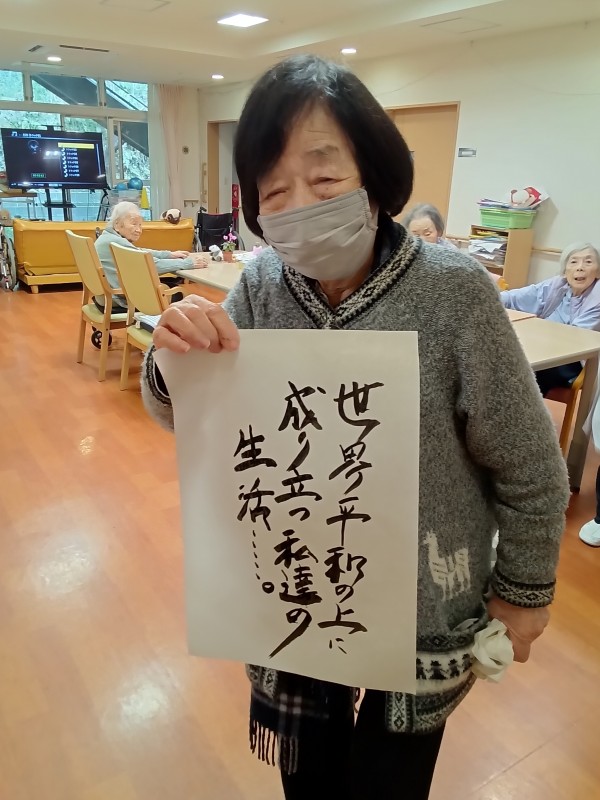 世界平和の上に
成り立つ私達の
生活……。